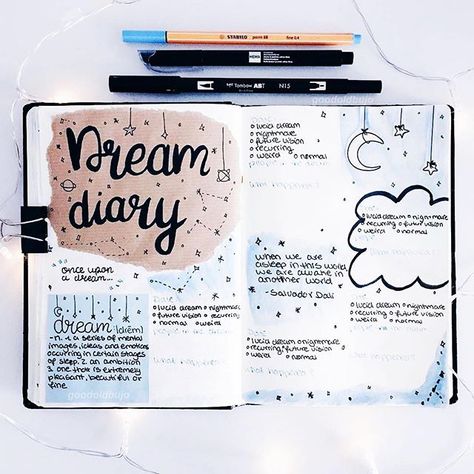 STABILO point 88 fine 0,4
Tombow ABT N15
goodoldbujo
Dream
diary
once upon
a dream...
dream |drēm|
-n. 1. a series of mental
images, ideas and emotions
occuring in certain stages
of sleep. 2. an ambition
3. one that is extremely
pleasant, beautiful or
fine.
goodoldbujo
date:
lucid dream nightmare
recurring future vision
normal weird
what happened?
date:
lucid dream
nightmare
future vision
recurring
weird normal
people:
what happened?
when we are
asleep in this world,
we are awake in
another world.
-Salvador Dalí
date:
lucid dream nightmare
recurring future vision
weird normal
what happened?
date:
lucid dream nightmare
recurring future vision
weird normal
what happened?
lucid dream nightmare
recurring future vision
weird normal